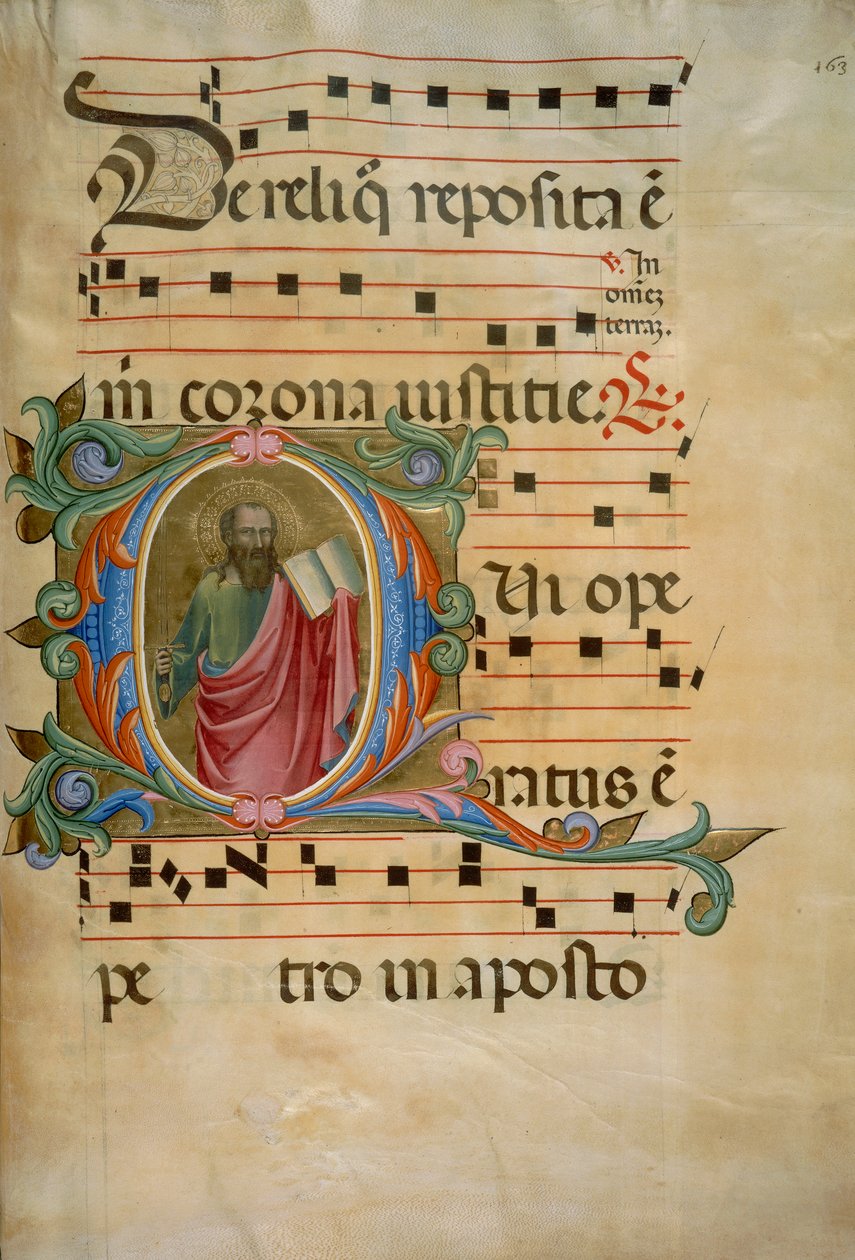 163
De reliq̃ reposita ẽ
℣. In
om̃eʒ
terraʒ.
m̃ corona iustitie. ℟.
Qui ope
ratus ẽ
pe tro in aposto